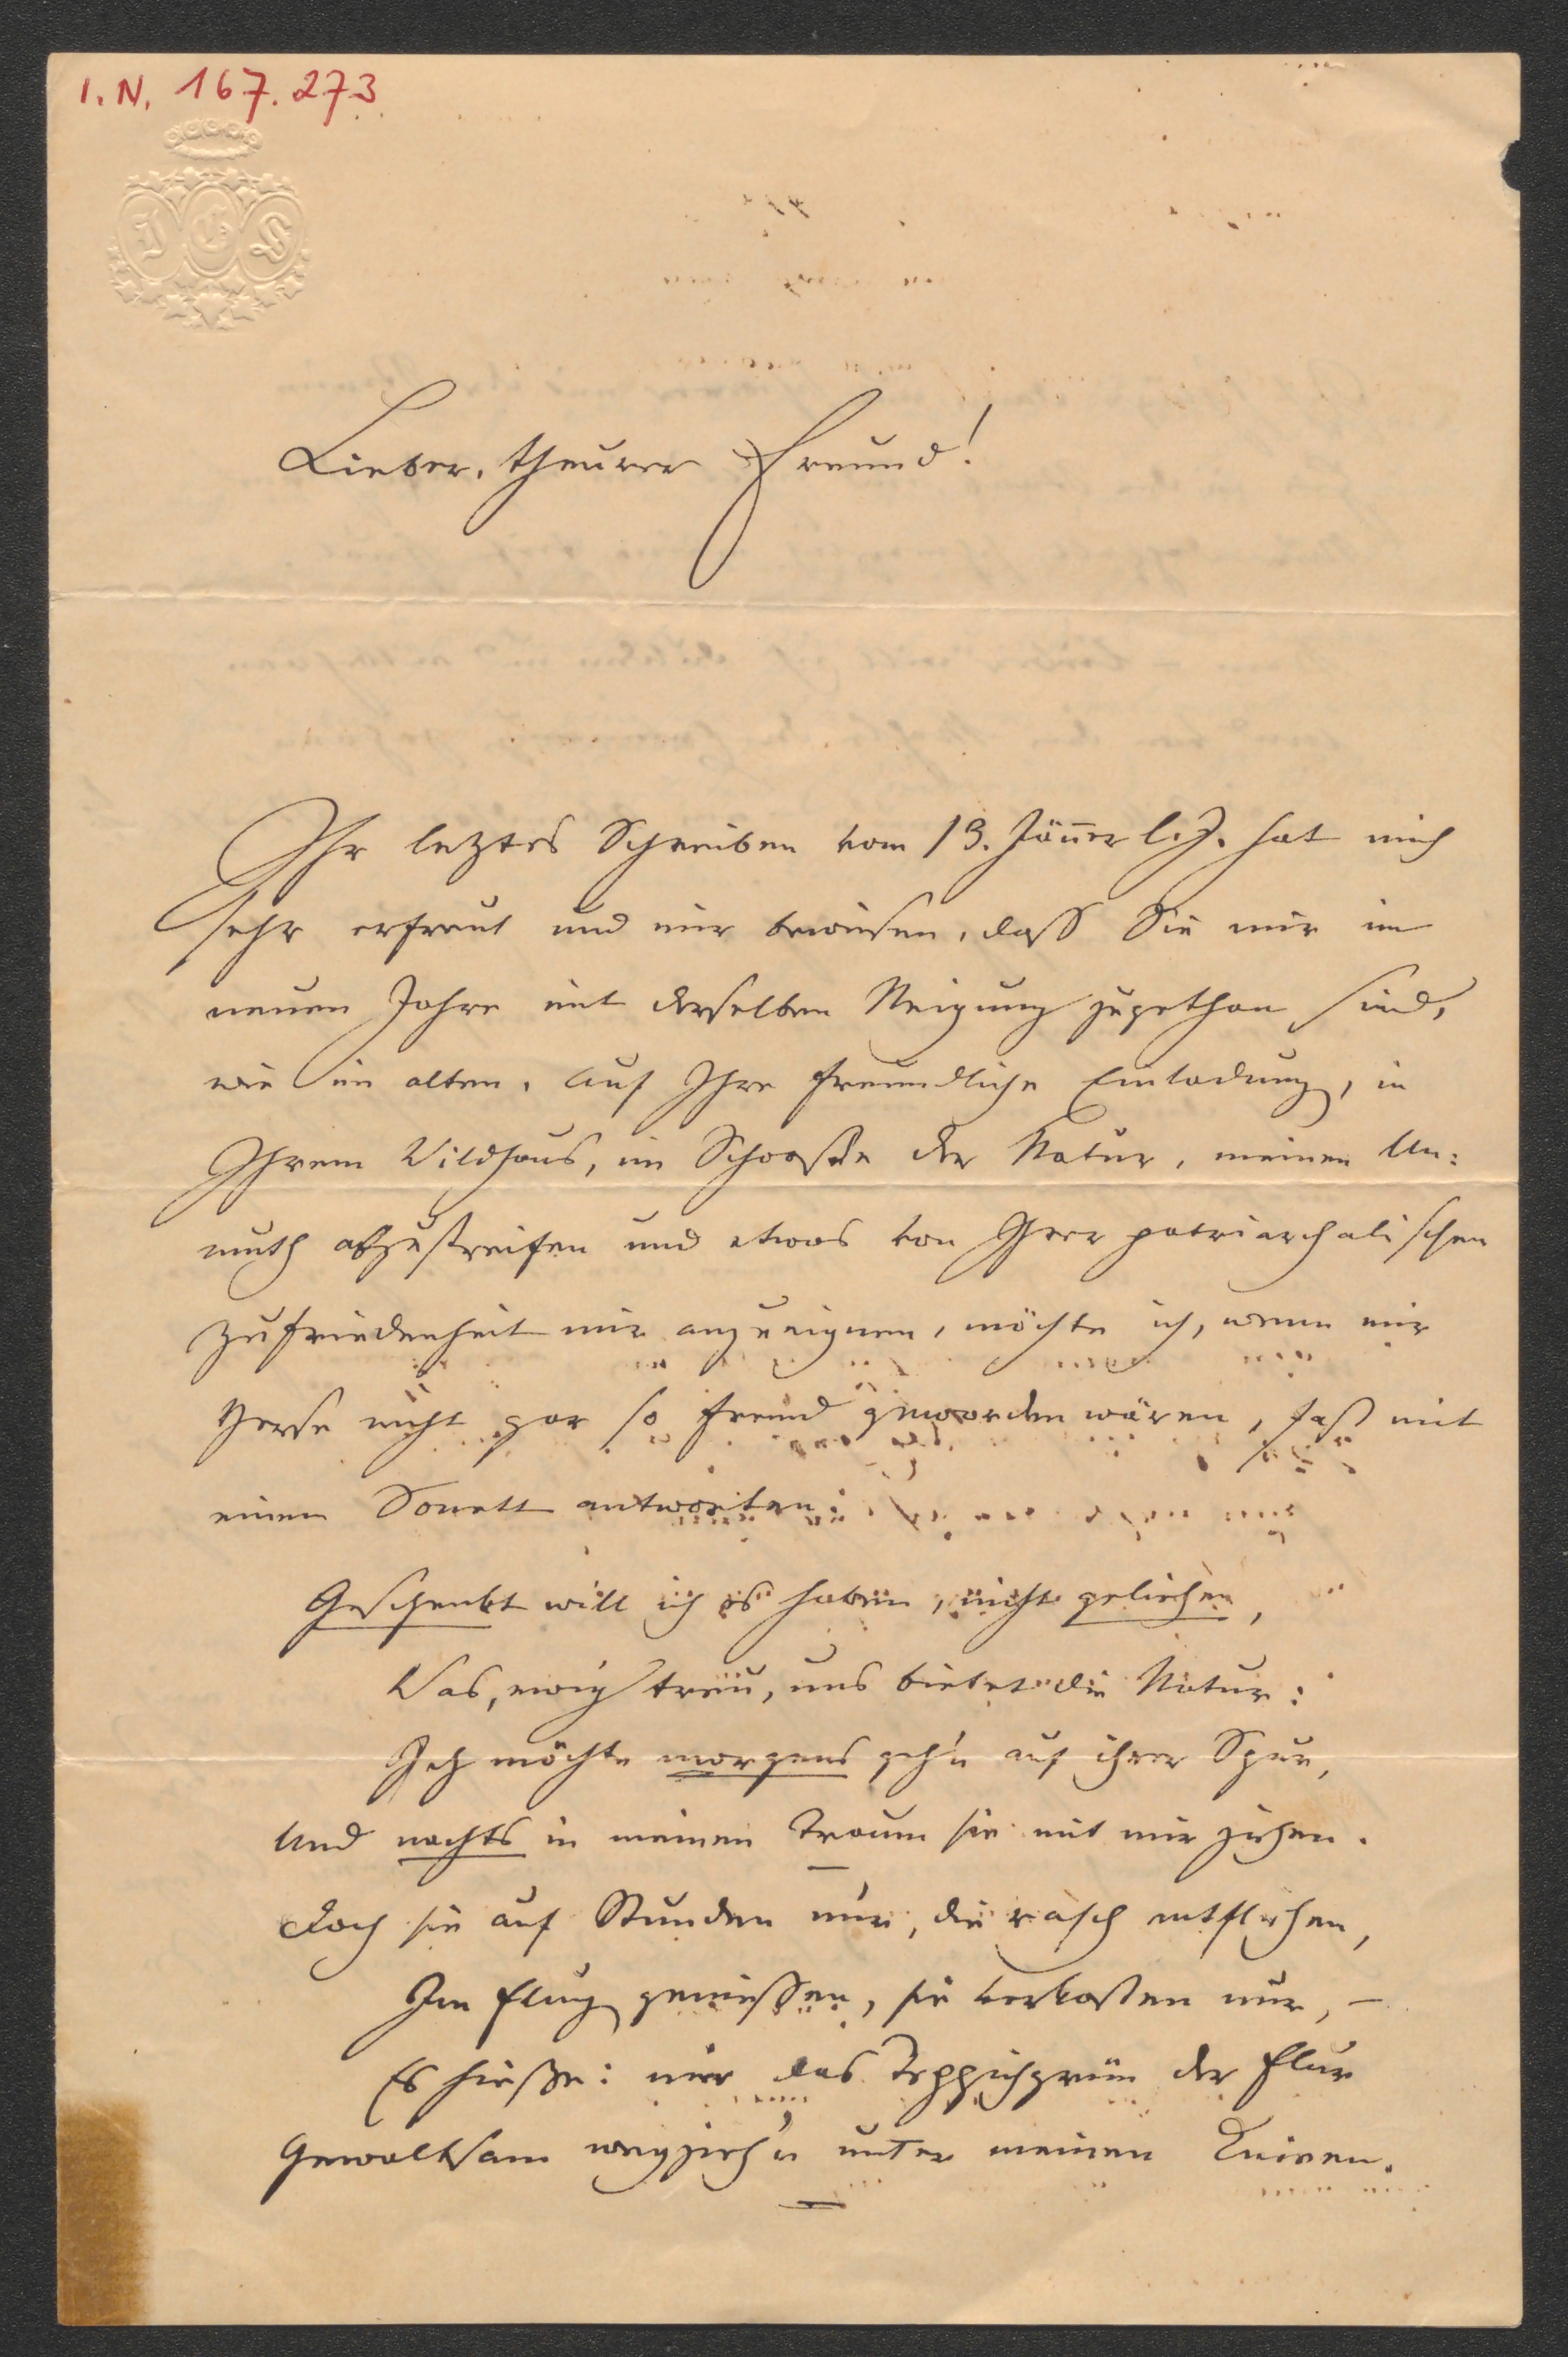 I. N. 167.273
J C S
Lieber, theurer Freund!
Ihr leztes Schreiben vom 13. Jäner l. J. hat mich
sehr erfreut und mir bewiesen, daß Sie mir im
neuen Jahre mit derselben Neigung zugethan sind,
wie im alten. Auf Ihre freundliche Einladung, in
Ihrem Wildhaus, im Schooße der Natur, meinen Un:
muth abzustreifen und etwas von Ihrer patriarchalischen
Zufriedenheit mir anzueignen, möchte ich, wenn mir
Verse nicht gar so fremd geworden wären, fast mit
einem Sonett antworten:
Geschenkt will ich es haben, nicht geliehen,
Was, ewig treu, uns bietet die Natur:
Ich möchte morgens geh'n auf ihrer Spur,
Und nachts in meinen Traum sie mit mir ziehen.
Doch sie auf Stunden nur, die rasch entfliehen,
Im Flug genießen, sie verkosten nur, –
Es hieße: mir das Teppichgrün der Flur
Gewaltsam wegzieh'n unter meinen Knieen.